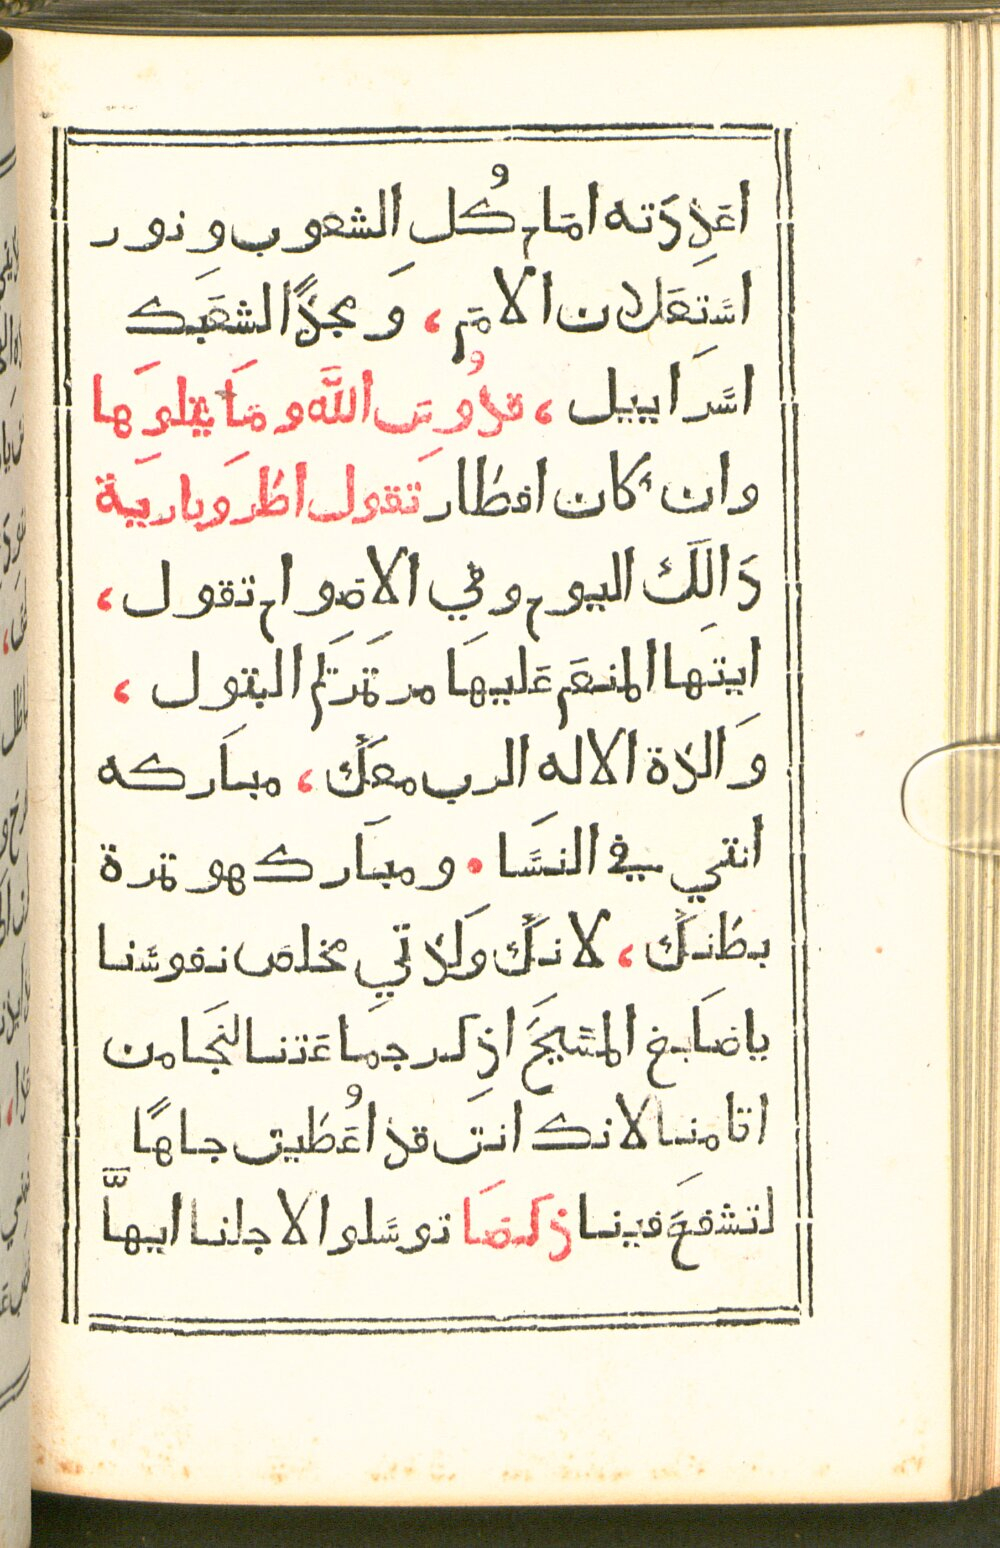 اعَدِدَته امَام كُل الشعوب ونور
استَعَلان الامَم، وَمجدًا لشعَبك
اسرَاييل، قدُوسِ اللَّه ومَا يتلوَها
وان كان افطار تقَول اطرَوباريَة
دَالَك اليوم وفي الاصوام تقول،
ايتَها المنعَم عَليهَا مرتمَريَم البتول،
وَالدة الاله الرب معَك، مبَاركه
انتي في النسَا. ومبَارك هو تمرة
بطنَك، لانَك وَلدتي مخلص نفوسَنا
ياصَابغ المسَيحَ اذِكر جمَاعَتنا لنَجَا من
اتامنا لانك انت قد اعُطيِت جاهًا
لتشفعَ فينا ذكصَا توسَلوا لاجلنا ايهَّا